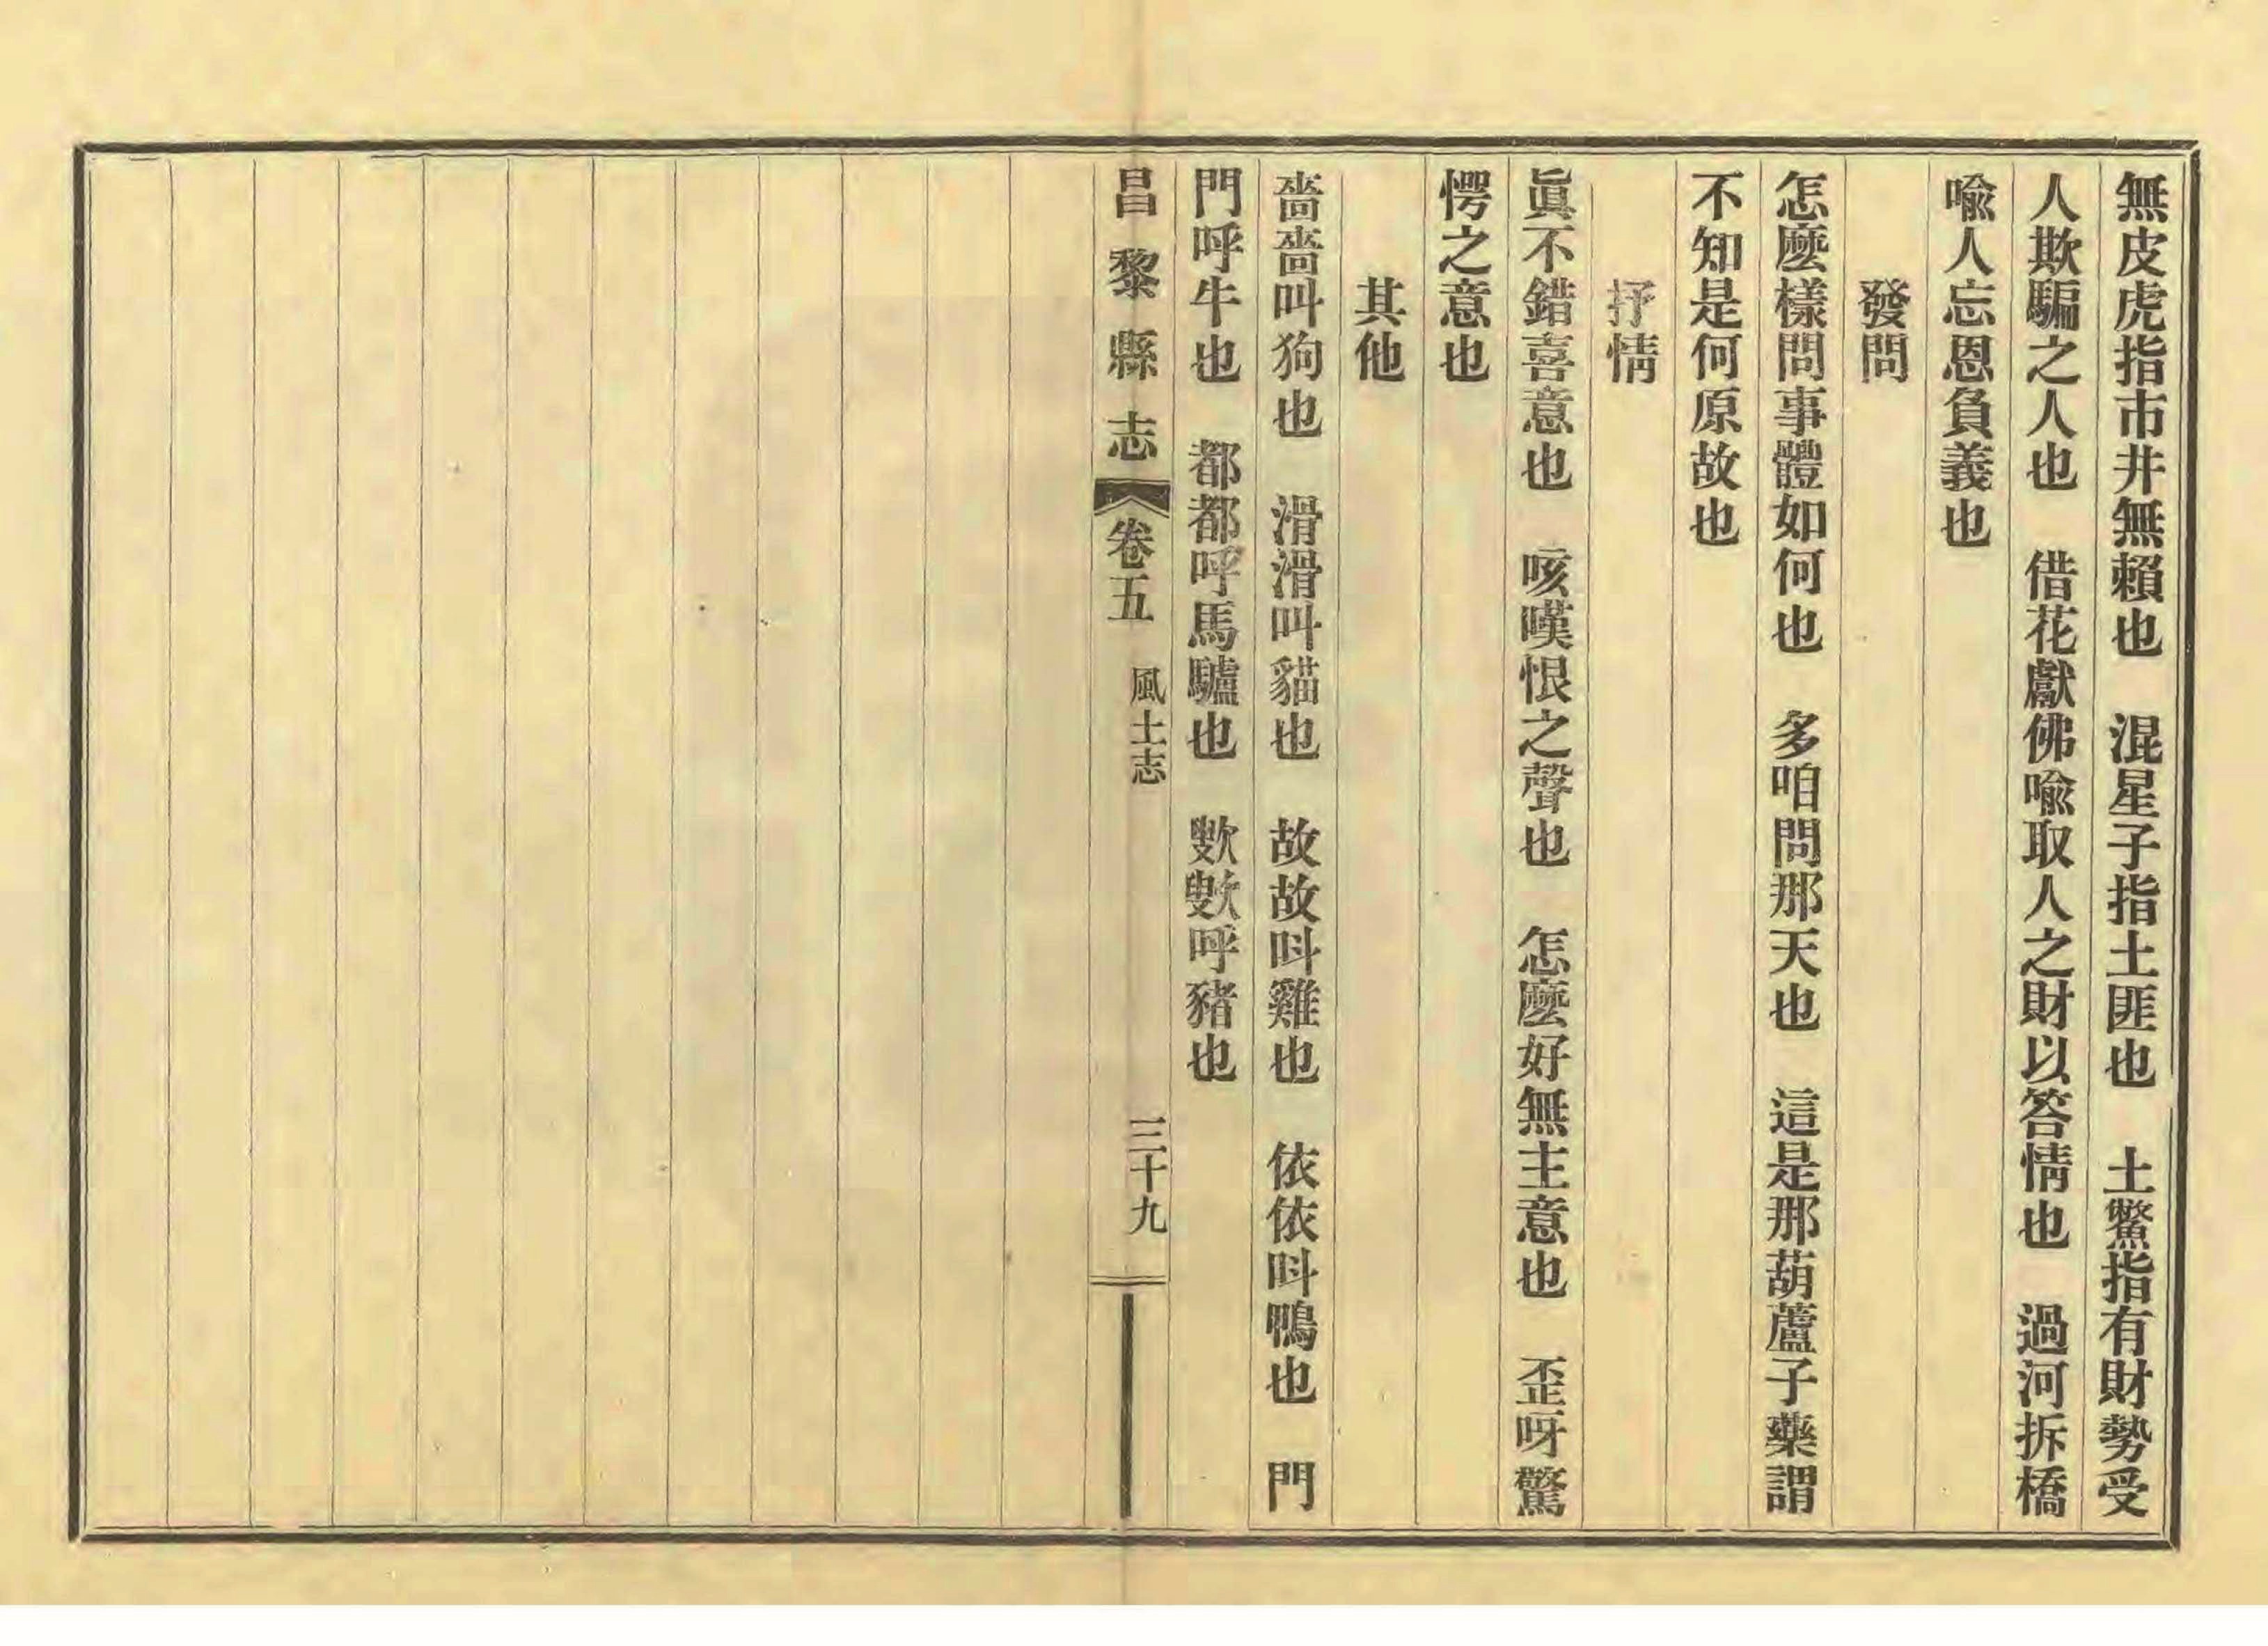 無皮虎指市井無賴也　混星子指土匪也　土鱉指有財勢受
人欺騙之人也　借花獻佛喩取人之財以答情也　過河拆橋
喩人忘恩負義也
發問
怎麽樣問事體如何也　多咱問那天也　這是那葫蘆子藥謂
不知是何原故也
抒情
眞不錯喜意也　咳嘆恨之聲也　怎麽好無主意也　歪呀驚
愕之意也
其他
嗇嗇叫狗也　滑滑叫貓也　故故呌雞也　依依呌鴨也　門
門呼牛也　都都呼馬驢也　呼豬也
昌黎縣志　卷五　風土志　三十九